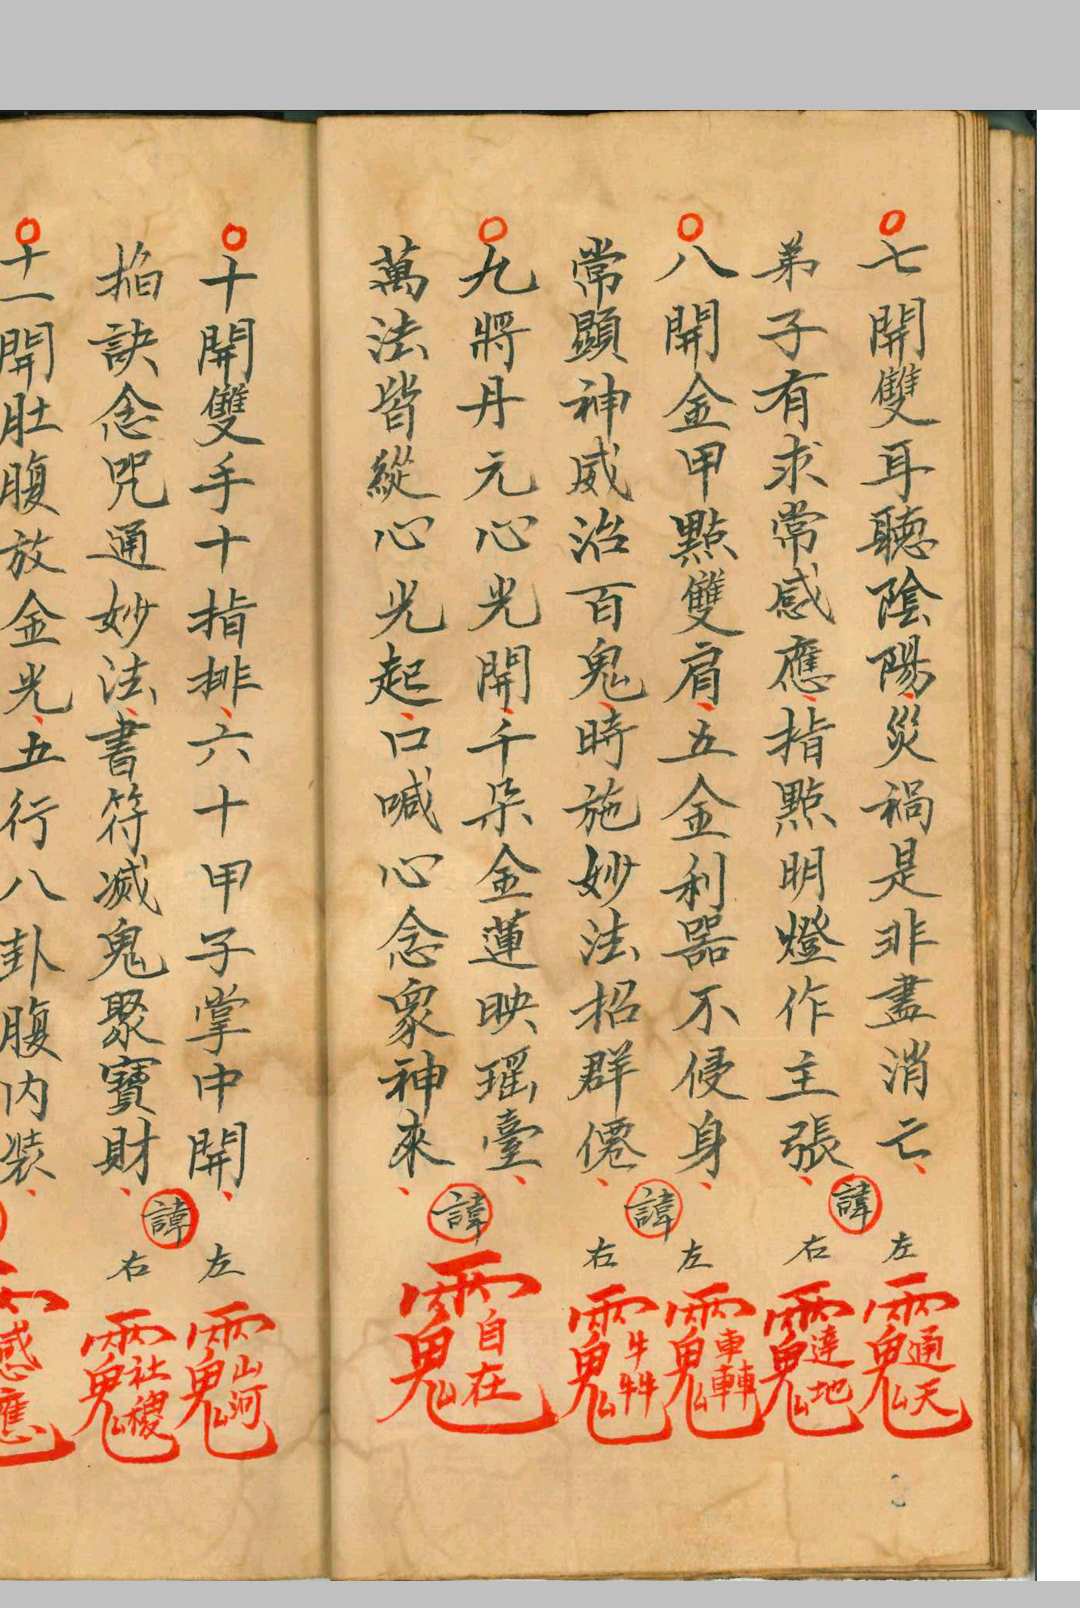 七開雙耳聽陰陽、災禍是非盡消亡、
弟子有求常感應、指點明燈作主張、
諱
左 通天
右 達地
八開金甲點雙肩、五金利器不侵身、
常顯神威治百鬼、時施妙法招群僊、
諱
左 車轉
右
九將丹元心光開、千朵金蓮映瑤臺、
萬法皆縱心光起、口喊心念衆神來、
諱
自在
十開雙手十指排、六十甲子掌中開、
掐訣念咒通妙法、書符滅鬼聚寶財、
諱
左 山河
右 社稷
十一開肚腹放金光、五行八卦腹內裝、
感應